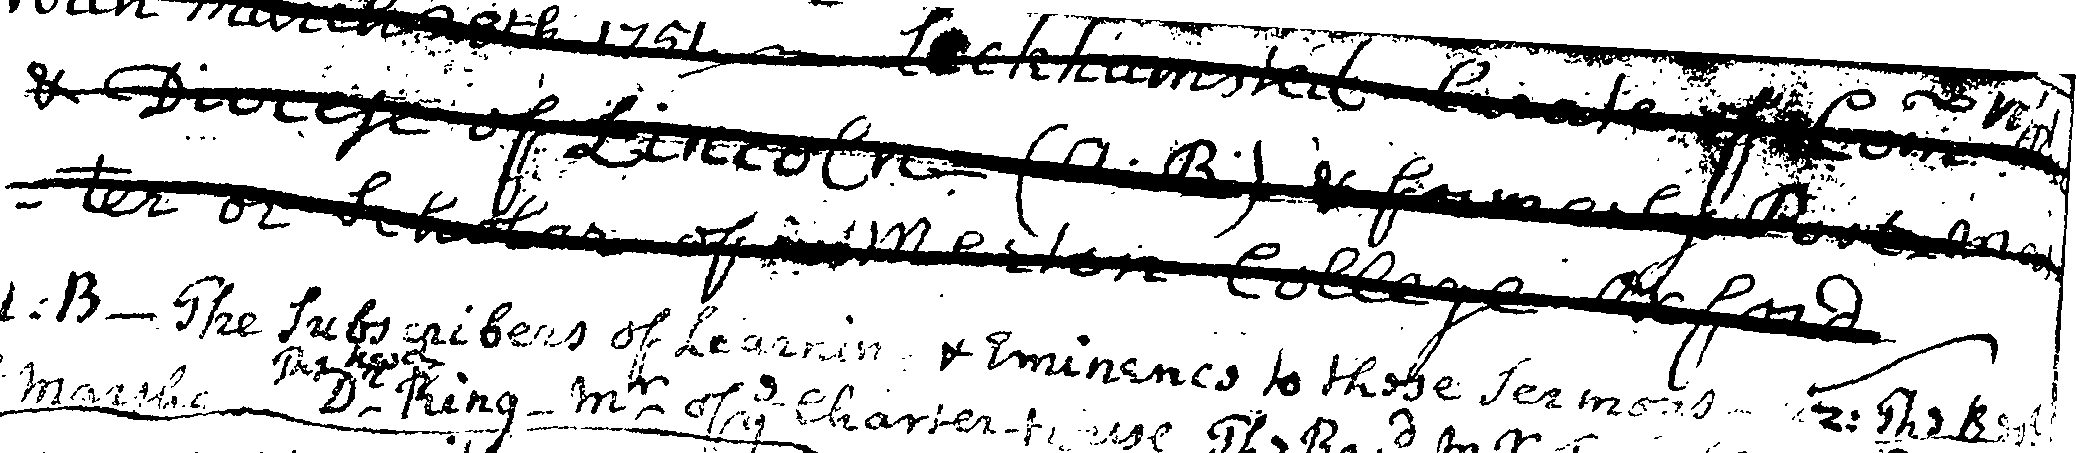 March 8th 1751 Leckhamsted Curate of
& Diocese of Lincoln (A.B.) & formerly Postmas
-ter or Scholar of Merton College Oxford
:B — The Subscribers of Learnin & Eminence to those Sermons The Revd
The Revd
Marsha Dr King Mr of ye Charter-House The Revd Mr